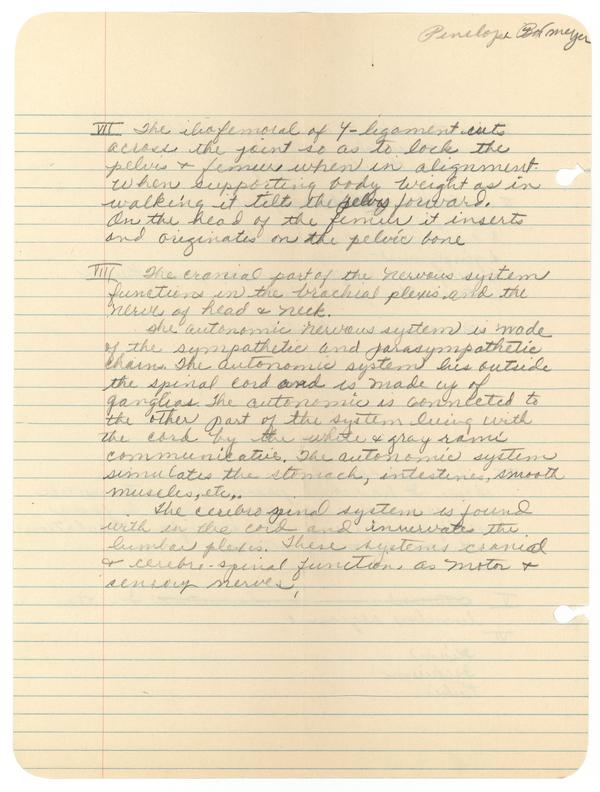 Penelope
VII The iliofemoral of Y-ligament cuts
across the joint so as to lock the
pelvis & femur when in alignment.
When supporting body weight as in
walking it tilts the pelvis forward.
On the head of the femur it inserts
and originates on the pelvic bone
VIII The cranial part of the nervous system
functions in the brachial plexis and the
nerves of head & neck.
The autonomic nervous system is made
of the sympathetic and parasympathetic
chain. The autonomic system lies outside
the spinal cord and is made up of
ganglias. The autonomic is connected to
the other part of the system living with
the cord by the white & gray rami
communicative. The autonomic system
simulates the stomach, intestines, smooth
muscles, etc..
The cerebro spinal system is found
with in the cord and innervate the
lumbar plexis. These systems cranial
& cerebro-spinal function as motor &
sensory nerves,